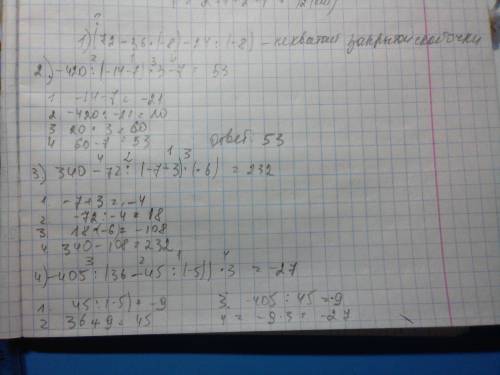 1) (72 - 36 · (-8) - 14 : (-8) - нехватает закрытой скобочки
2) -420 : (-14-7) · 3 - 7 = 53
1 -14-7 = -21
2 -420 : -21 = 20
3 20 · 3 = 60
4 60 - 7 = 53 ответ: 53
3) 340 - 72 : (-7+3) · (-6) = 232
1 -7+3 = -4
2 -72 : -4 = 18
3 18 · (-6) = -108
4 340 - 108 = 232
4) -405 : (36 - 45 : (-5)) · 3 = -27
1 45 : (-5) = -9 3 -405 : 45 = -9
2 36+9 = 45 4 = -9 · 3 = -27